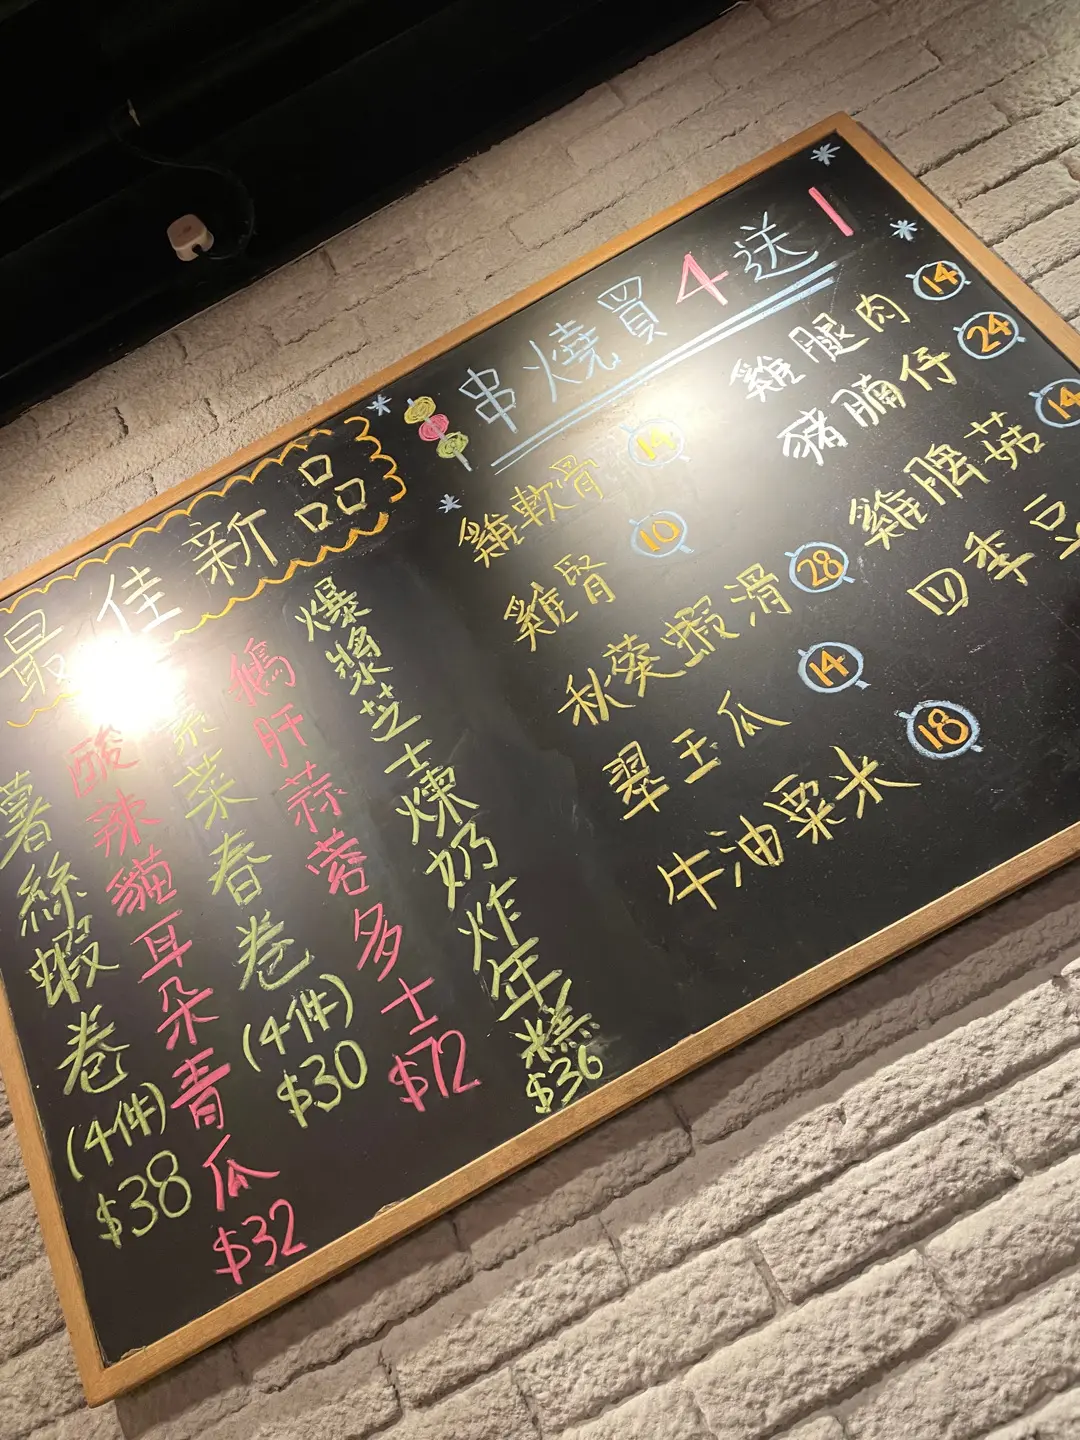 最佳新品
爆漿芝士煉奶炸年糕 $36
鵝肝蒜蓉多士 $72
素菜春卷 (4件) $30
酸辣貓耳朵青瓜 $32
薯絲蝦卷 (4件) $38
串燒買4送1
雞軟骨 14
雞腎 10
秋葵蝦滑 28
翠玉瓜 14
牛油粟米 18
雞腿肉 14
豬腩仔 24
雞髀菇 14
四季豆